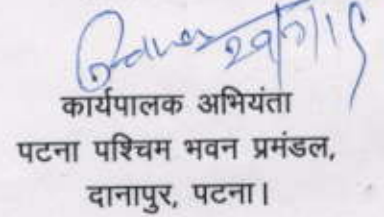 29/7/15
कार्यपालक अभियंता
पटना पश्चिम भवन प्रमंडल,
दानापुर, पटना।